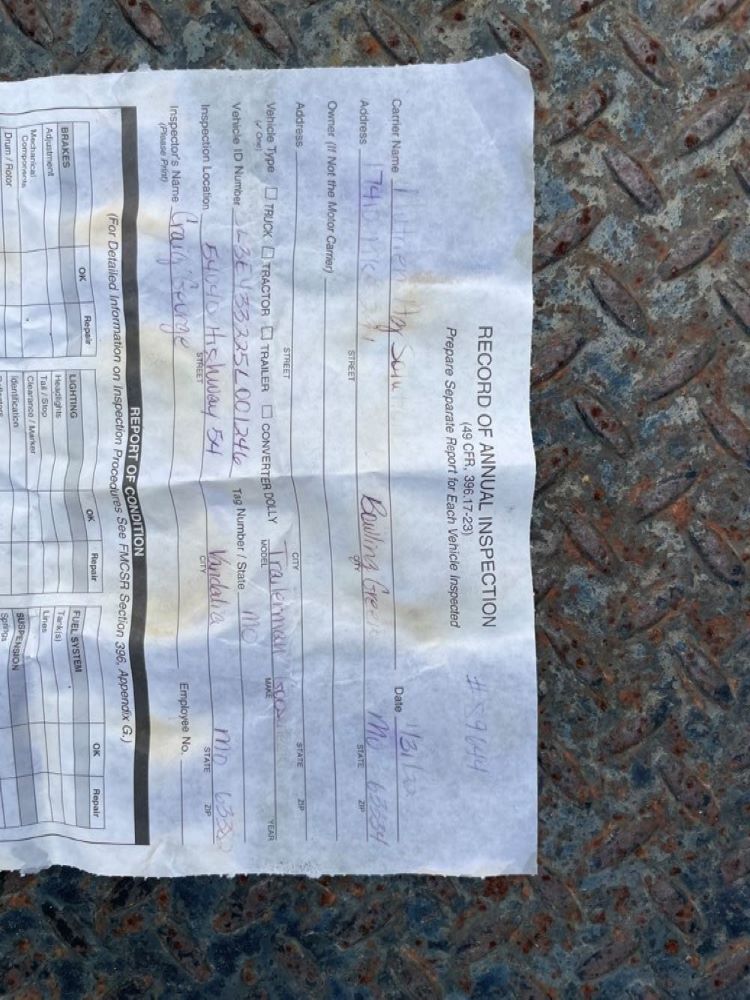 RECORD OF ANNUAL INSPECTION
(49 CFR, 396.17-23)
Prepare Separate Report for Each Vehicle Inspected
Carrier Name Hay Date
Address Bowling Green MO 63334
STREET CITY STATE ZIP
Owner (If Not the Motor Carrier)
Address
STREET CITY STATE ZIP
Vehicle Type ☐ TRUCK ☐ TRACTOR ☐ TRAILER ☐ CONVERTER DOLLY Trailerman
(✓ One) MODEL MAKE YEAR
Vehicle ID Number Tag Number / State MO
Inspection Location 54040 Highway 54 Vandalia MO
STREET CITY STATE ZIP
Inspector's Name Craig George Employee No.
(Please Print)
REPORT OF CONDITION
(For Detailed Information on Inspection Procedures See FMCSR Section 396, Appendix G.)
BRAKES OK Repair LIGHTING OK Repair FUEL SYSTEM OK Repair
Adjustment Headlights Tank(s)
Mechanical Components Tail / Stop Lines
Drum / Rotor Clearance / Marker SUSPENSION
Identification Springs